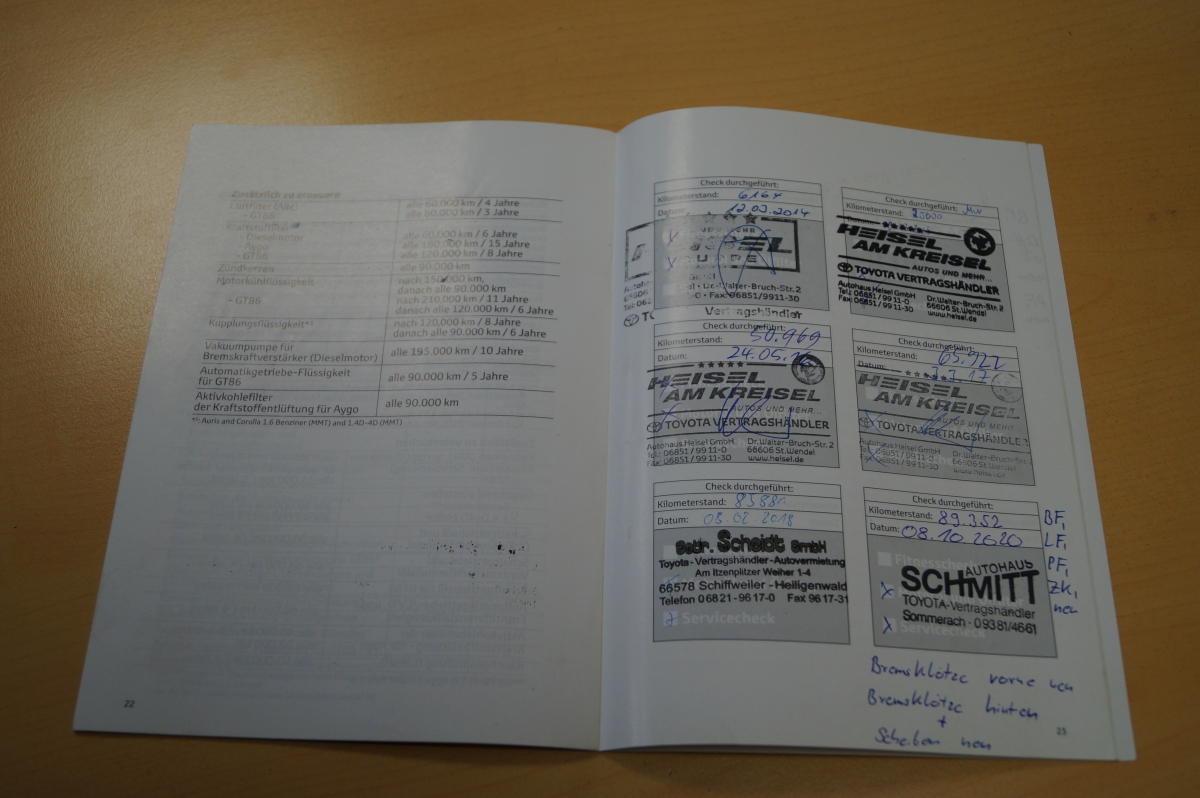 Zusätzlich zu erneuern
Luftfilter (Alle) alle 60.000 km / 4 Jahre
- GT86 alle 80.000 km / 3 Jahre
Kraftstofffilter
- Dieselmotor alle 60.000 km / 6 Jahre
- Aygo alle 180.000 km / 15 Jahre
- GT86 alle 120.000 km / 8 Jahre
Zündkerzen alle 90.000 km
Motorkühlflüssigkeit nach 150.000 km,
danach alle 90.000 km
- GT86 nach 210.000 km / 11 Jahre
danach alle 120.000 km / 6 Jahre
Kupplungsflüssigkeit*¹ nach 120.000 km / 8 Jahre
danach alle 90.000 km / 6 Jahre
Vakuumpumpe für
Bremskraftverstärker (Dieselmotor) alle 195.000 km / 10 Jahre
Automatikgetriebe-Flüssigkeit
für GT86 alle 90.000 km / 5 Jahre
Aktivkohlefilter
der Kraftstoffentlüftung für Aygo alle 90.000 km
*¹: Auris and Corolla 1.6 Benziner (MMT) and 1.4D-4D (MMT)
22
Check durchgeführt:
Kilometerstand: 6164
Datum: 12.03.2014
Dr.-Walter-Bruch-Str.2
Fax: 06851/9911-30
Vertragshändler
Check durchgeführt:
Kilometerstand:
HEISEL
AM KREISEL
AUTOS UND MEHR...
TOYOTA VERTRAGSHÄNDLER
Autohaus Heisel GmbH Dr.Walter-Bruch-Str.2
Tel.: 06851/9911-0 66606 St.Wendel
Fax: 06851/9911-30 www.heisel.de
Check durchgeführt:
Kilometerstand: 50.969
Datum: 24.05.16
HEISEL
AM KREISEL
AUTOS UND MEHR...
TOYOTA VERTRAGSHÄNDLER
Autohaus Heisel GmbH Dr.Walter-Bruch-Str.2
Tel.: 06851/9911-0 66606 St.Wendel
Fax: 06851/9911-30 www.heisel.de
Check durchgeführt:
Kilometerstand: 65.922
Datum: 3.3.17
HEISEL
AM KREISEL
AUTOS UND MEHR
TOYOTA VERTRAGSHÄNDLER
Autohaus Heisel GmbH Dr.Walter-Bruch-Str.
Tel.: 06851/9911-0 66606 St.Wendel
Fax: 06851/9911-30 www.heisel.de
Check durchgeführt:
Kilometerstand:
Datum: 08.02.2018
Gebr. Scheidt GmbH
Toyota-Vertragshändler-Autovermietung
Am Itzenplitzer Weiher 1-4
66578 Schiffweiler-Heiligenwald
Telefon 06821-9617-0 Fax 9617-31
Servicecheck
Check durchgeführt:
Kilometerstand: 89.352
Datum: 08.10.2020
BF,
LF,
PF,
ZK,
neu
Fitnesscheck
AUTOHAUS
SCHMITT
TOYOTA-Vertragshändler
Sommerach - 09381/4661
Servicecheck
Bremsklötze vorne neu
Bremsklötze hinten
+
Scheiben neu
23